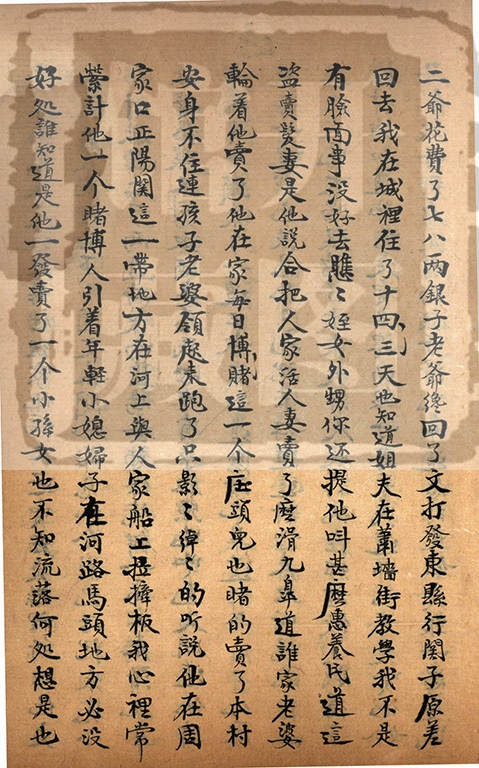 二爺花費了七八两銀子老爺终回了文打發東縣行関子原差
回去我在城裡住了十四三天也知道姐夫在蕭墻街教學我不是
有臉面事没好去瞧〻姪女外甥你还提他呌甚麽惠養民道這
盗賣髮妻是他說合把人家活人妻賣了麽滑九臯道誰家老婆
輪着他賣了他在家每日博賭這一个庄頭児也賭的賣了本村
安身不住連孩子老婆領起来跑了只影〻綽〻的听說他在周
家口正陽関這一帯地方在河上與人家船上拉擡板我心裡常
縈計他一个賭博人引着年軽小媳婦子在河路馬頭地方必没
好処誰知道是他一發賣了一个小孫女也不知流落何処想是也